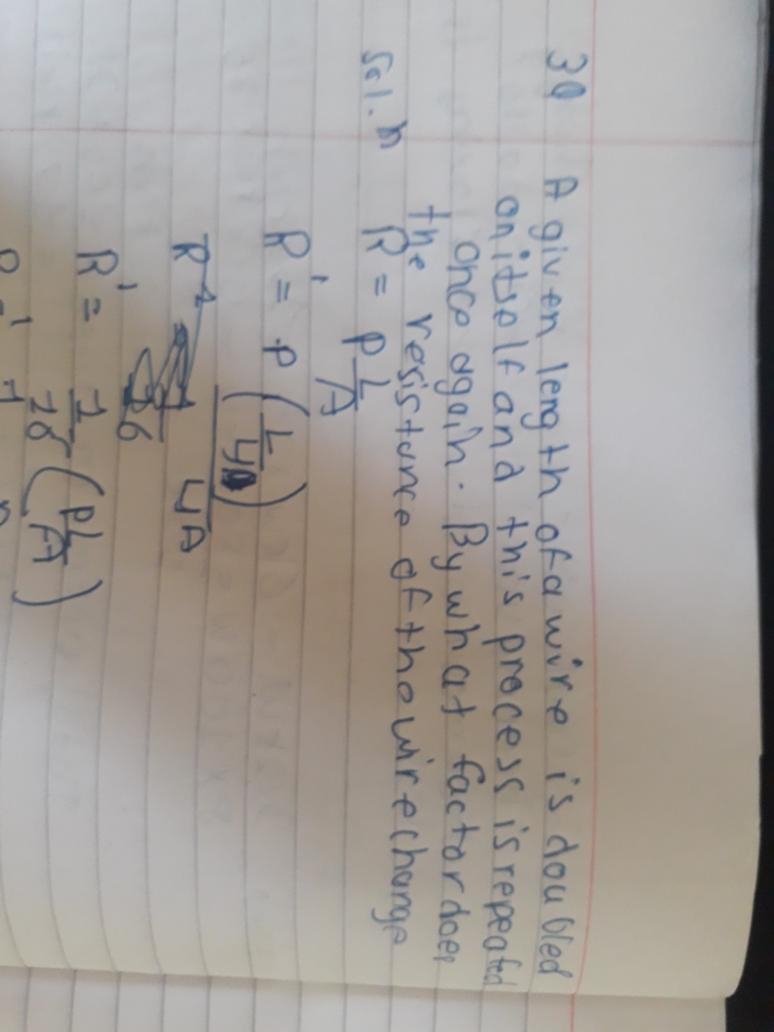 3Q A given length of a wire is doubled
on itself and this process is repeated
once again. By what factor does
the resistance of the wire change
Sol.n R = ρ L/A
R' = ρ (L/4) / 4A
R' = 1/16 (ρL/A)